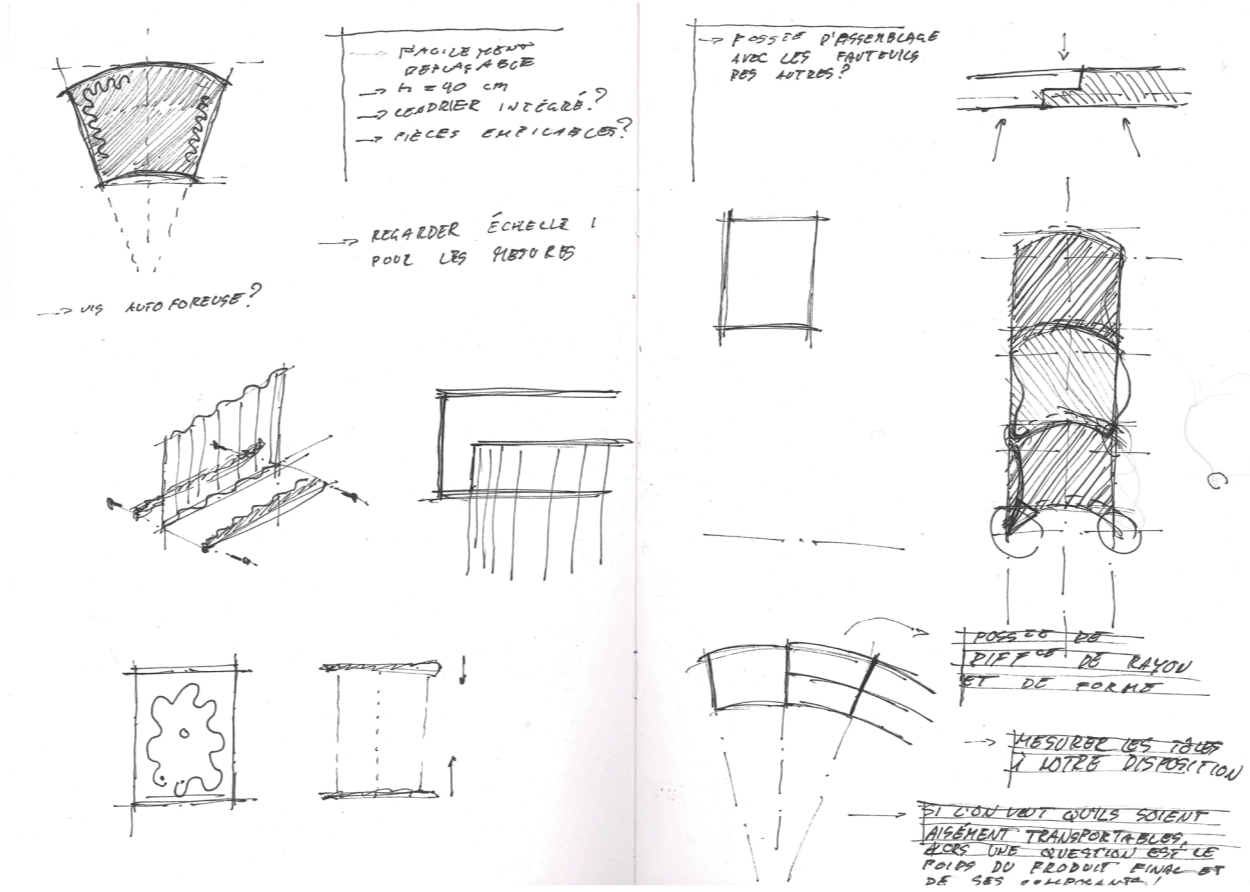 → FACILEMENT
DEPLAÇABLE
→ h = 40 cm
→ CENDRIER INTÉGRÉ?
→ PIÈCES EMPILABLES?
→ REGARDER ÉCHELLE 1
POUR LES MESURES
→ VIS AUTOFOREUSE?
→ POSSTÉ D'ASSEMBLAGE
AVEC LES FAUTEUILS
DES AUTRES?
POSSTÉ DE
DIFFCE DE RAYON
ET DE FORME
→ MESURER LES TÔLES
À NOTRE DISPOSITION
→ SI L'ON VEUT QU'ILS SOIENT
AISÉMENT TRANSPORTABLES,
ALORS UNE QUESTION EST LE
POIDS DU PRODUIT FINAL ET
DE SES COMPOSANTS!